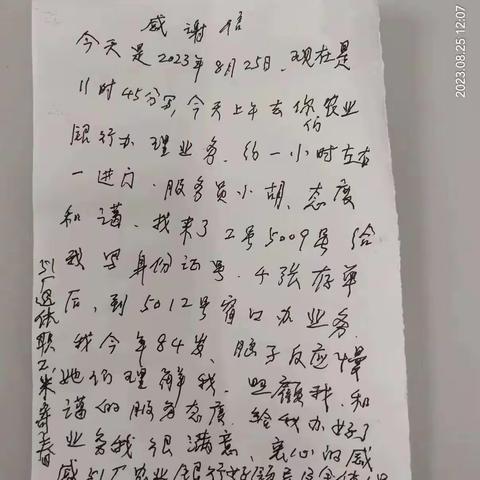 感谢信
今天是2023年8月25日、现在是
11时45分写,今天上午去你们农业
银行办理业务.约一小时左右
一进门.服务员小胡、态度
和谒、我来了2号5009号给
我写身份证号.4张存单
后,到5012号窗口办业务.
我今年84岁、脑子反应慢
她们理解我.照顾我.和
谒的服务态度.给我办好了
业务我很满意、衷心的感
感51厂农业银行好领导
51厂退休职工米寄春
2023.08.25 12:07